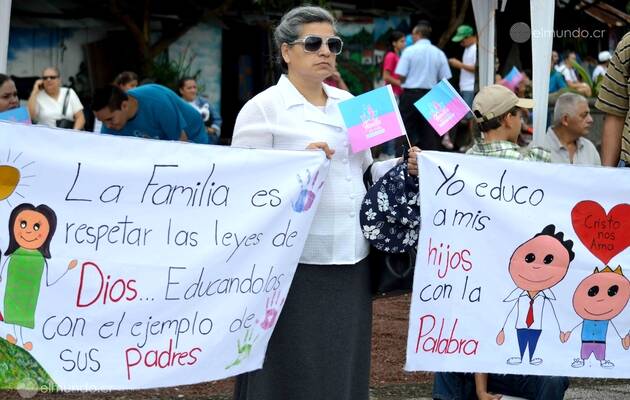 elmundo.cr
La Familia es
respetar las leyes de
Dios... Educandolos
con el ejemplo de
sus padres
Yo educo
a mis
hijos
con la
Palabra
Cristo
nos
Ama
elmundo.cr